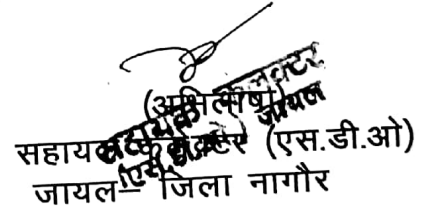 (अभिलाषा)
सहायक कलेक्टर (एस.डी.ओ)
जायल– जिला नागौर
सहायक कलक्टर
जायल